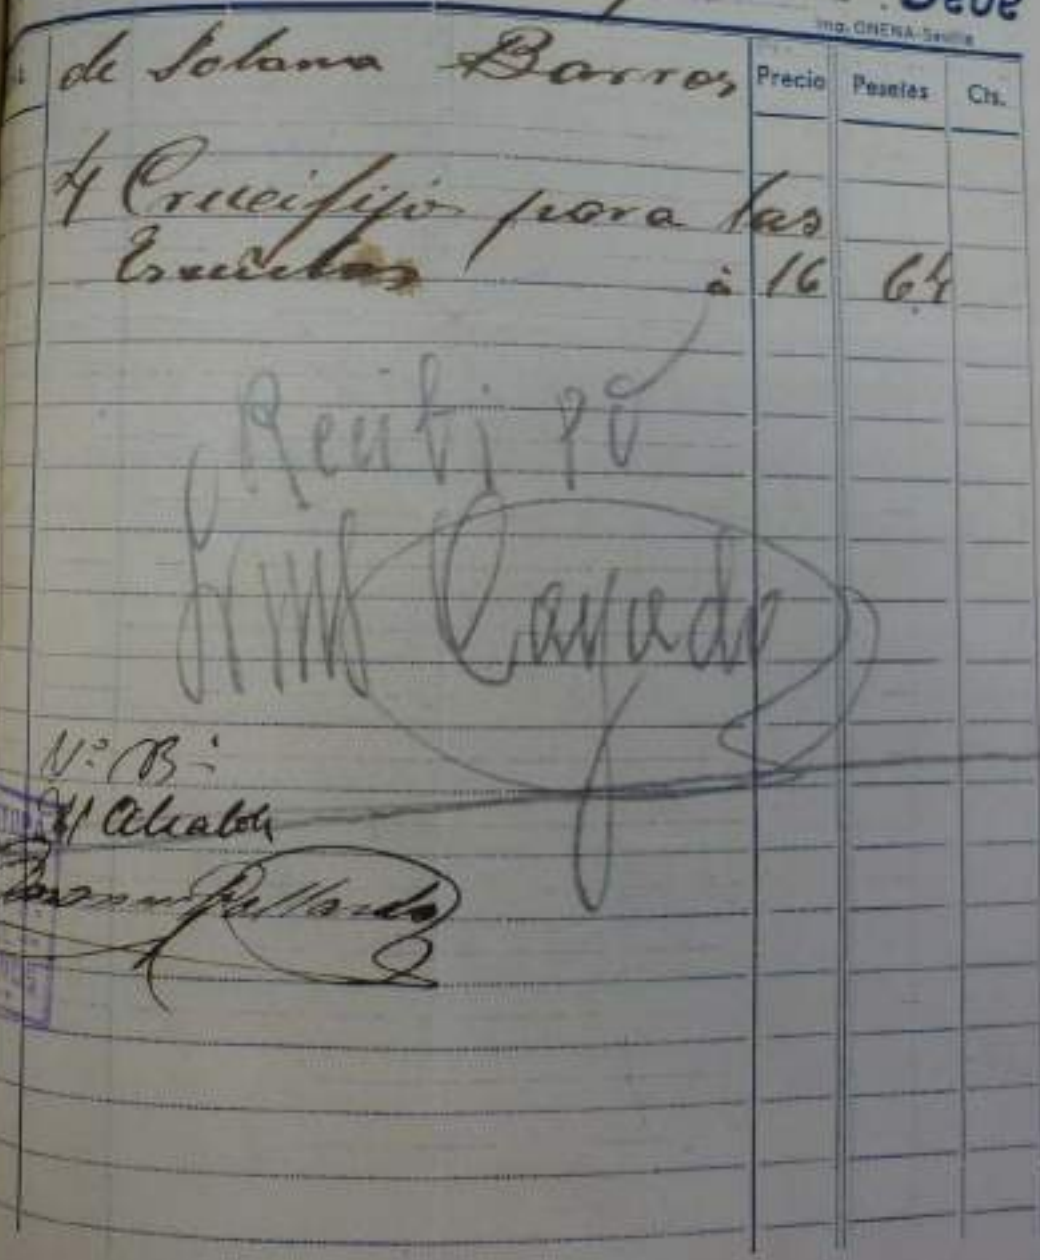 Debe
Imp. ONENA-Sevilla
de Solana Barros Precio Pesetas Cts.
4 Crucifijo para las
Escuelas à 16 64
Recibi
Luis Cayado
Vº Bº
El Alcalde
Gallardo